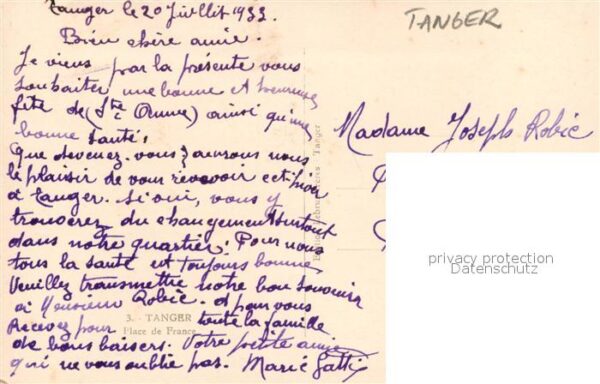 Tanger le 20 Juillet 1933
TANGER
Bien chère amie.
Je viens par la présente vous
souhaiter une bonne et heureuse
fête de (Ste Anne) ainsi qu'une
bonne santé,
Madame Joseph Robic
Que devenez-vous? aurons nous
le plaisir de vous revevoir cet hiver
à Tanger. Si oui, vous y
trouverez du changement surtout
dans notre quartier! Pour nous
tous la santé est toujours bonne
Veuillez transmettre notre bon souvenir
à Monsieur Robic. et pour vous
Recevez pour toute la famille
de bons baisers. Votre petite amie
qui ne vous oublie pas. Marie Gatti
3. - TANGER
Place de France
Tanger
privacy protection
Datenschutz